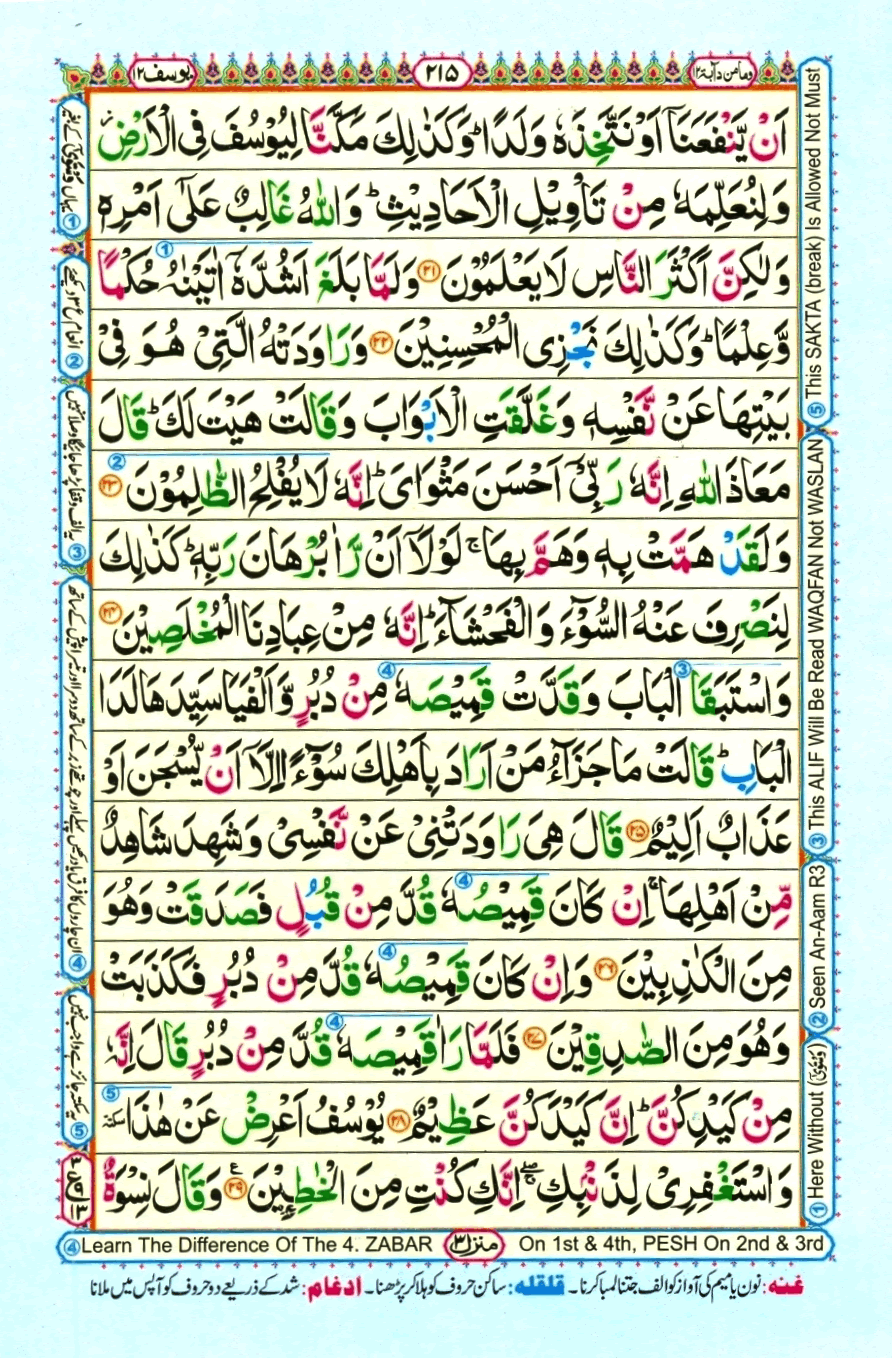 يوسف ١٢
٢١٥
ومامن دآبة ١٢
اَنْ يَّنْفَعَنَاۤ اَوْ نَتَّخِذَهٗ وَلَدًا ؕ وَكَذٰلِكَ مَكَّنَّا لِيُوْسُفَ فِى الْاَرْضِ ؗ
وَلِنُعَلِّمَهٗ مِنْ تَاْوِيْلِ الْاَحَادِيْثِ ؕ وَاللّٰهُ غَالِبٌ عَلٰٓى اَمْرِهٖ
وَلٰكِنَّ اَكْثَرَ النَّاسِ لَا يَعْلَمُوْنَ ۲۱ وَلَمَّا بَلَغَ اَشُدَّهٗۤ اٰتَيْنٰهُ حُكْمًا
وَّعِلْمًا ؕ وَكَذٰلِكَ نَجْزِى الْمُحْسِنِيْنَ ۲۲ وَرَاوَدَتْهُ الَّتِىْ هُوَ فِىْ
بَيْتِهَا عَنْ نَّفْسِهٖ وَغَلَّقَتِ الْاَبْوَابَ وَقَالَتْ هَيْتَ لَكَ ؕ قَالَ
مَعَاذَ اللّٰهِ اِنَّهٗ رَبِّىْۤ اَحْسَنَ مَثْوَاىَ ؕ اِنَّهٗ لَا يُفْلِحُ الظّٰلِمُوْنَ ۲۳
وَلَقَدْ هَمَّتْ بِهٖ وَهَمَّ بِهَا ۚ لَوْلَاۤ اَنْ رَّاٰ بُرْهَانَ رَبِّهٖ ؕ كَذٰلِكَ
لِنَصْرِفَ عَنْهُ السُّوْٓءَ وَالْفَحْشَآءَ ؕ اِنَّهٗ مِنْ عِبَادِنَا الْمُخْلَصِيْنَ ۲۴
وَاسْتَبَقَا الْبَابَ وَقَدَّتْ قَمِيْصَهٗ مِنْ دُبُرٍ وَّاَلْفَيَا سَيِّدَهَا لَدَا
الْبَابِ ؕ قَالَتْ مَا جَزَآءُ مَنْ اَرَادَ بِاَهْلِكَ سُوْٓءًا اِلَّاۤ اَنْ يُّسْجَنَ اَوْ
عَذَابٌ اَلِيْمٌ ۲۵ قَالَ هِىَ رَاوَدَتْنِىْ عَنْ نَّفْسِىْ وَشَهِدَ شَاهِدٌ
مِّنْ اَهْلِهَا ۚ اِنْ كَانَ قَمِيْصُهٗ قُدَّ مِنْ قُبُلٍ فَصَدَقَتْ وَهُوَ
مِنَ الْكٰذِبِيْنَ ۲۶ وَاِنْ كَانَ قَمِيْصُهٗ قُدَّ مِنْ دُبُرٍ فَكَذَبَتْ
وَهُوَ مِنَ الصّٰدِقِيْنَ ۲۷ فَلَمَّا رَاٰ قَمِيْصَهٗ قُدَّ مِنْ دُبُرٍ قَالَ اِنَّهٗ
مِنْ كَيْدِكُنَّ ؕ اِنَّ كَيْدَكُنَّ عَظِيْمٌ ۲۸ يُوْسُفُ اَعْرِضْ عَنْ هٰذَا سكتة
وَاسْتَغْفِرِىْ لِذَنْۢبِكِ ۖۚ اِنَّكِ كُنْتِ مِنَ الْخٰطِـِٕيْنَ ۲۹ وَقَالَ نِسْوَةٌ
① Here Without (وَسَتَوٰىٓ)
② Seen An-Aam R3
③ This ALIF Will Be Read WAQFAN Not WASLAN
⑤ This SAKTA (break) Is Allowed Not Must
④ Learn The Difference Of The 4. ZABAR
منزل ٣
On 1st & 4th, PESH On 2nd & 3rd
غنه: نون یا میم کی آواز کو الف جتنا لمبا کرنا۔ قلقله: ساکن حروف کو ہلا کر پڑھنا۔ ادغام: شد کے ذریعے دو حروف کو آپس میں ملانا